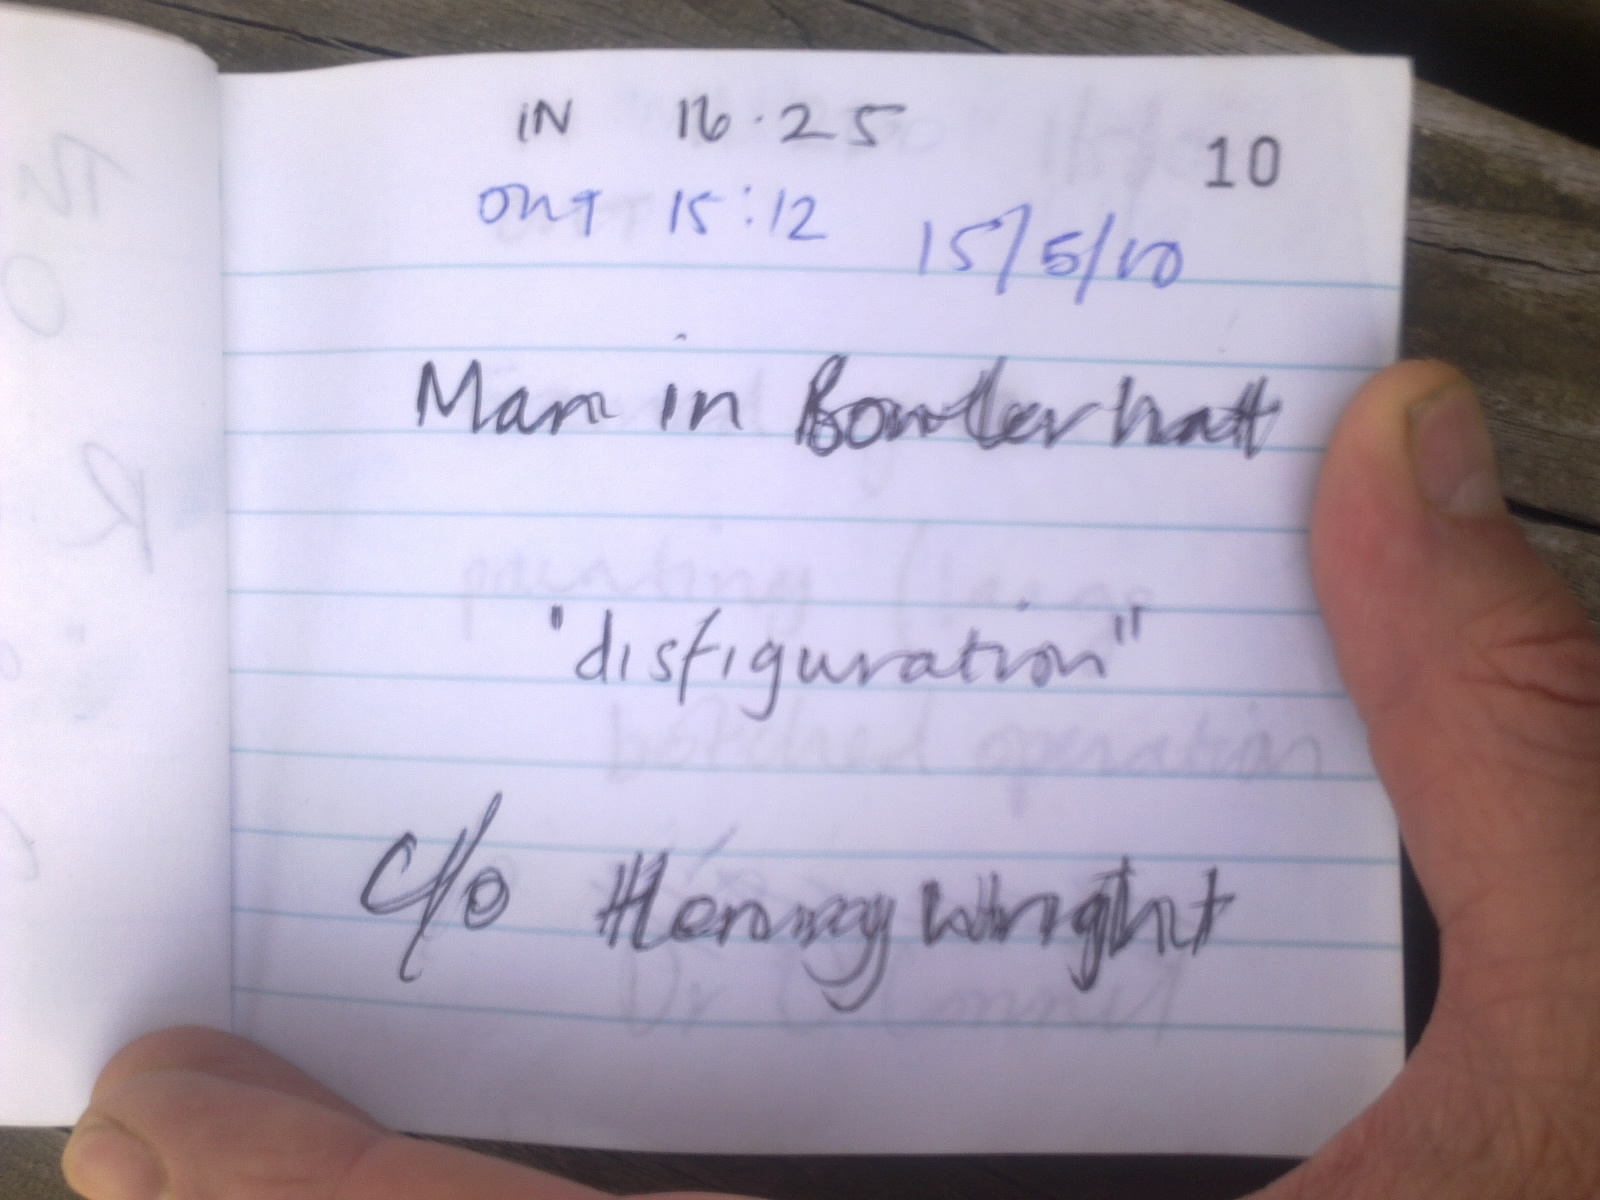 IN 16·25
10
OUT 15:12 15/5/10
Man in Bowler hatt
"disfiguration"
c/o Henry Wright